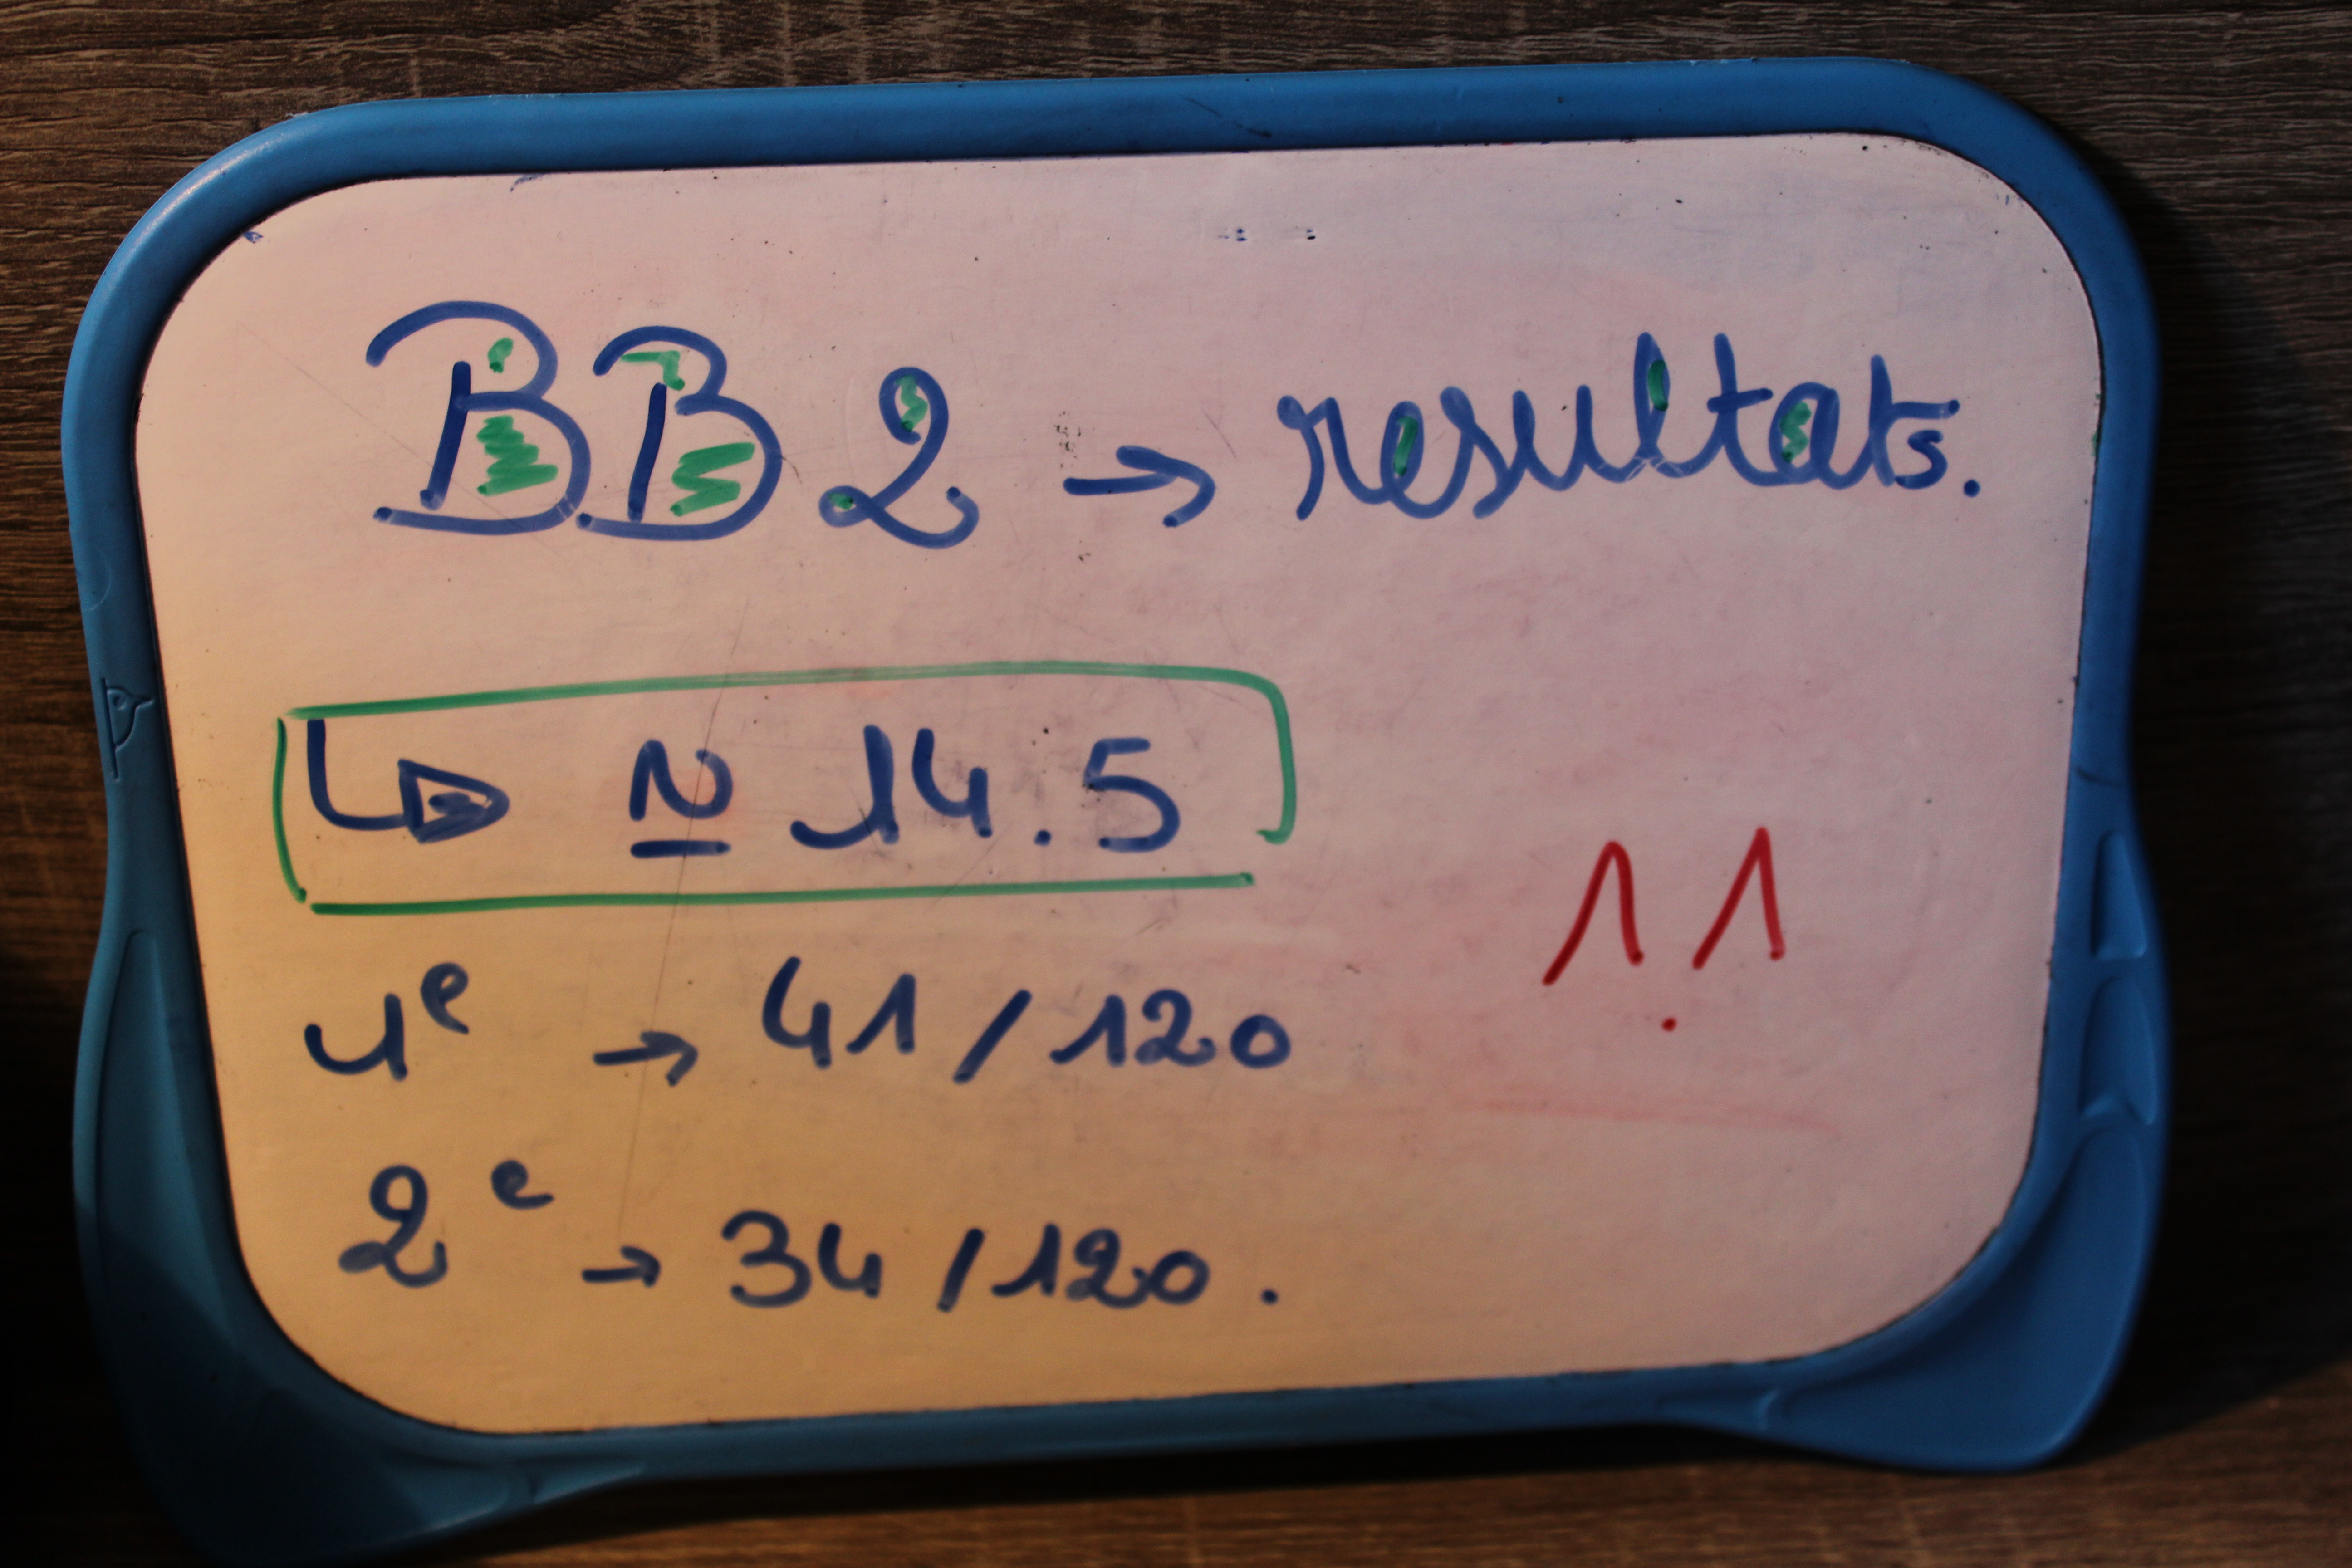 BB2 → resultats.
↳ ≃ 14.5
1e → 41/120
2e → 34/120.